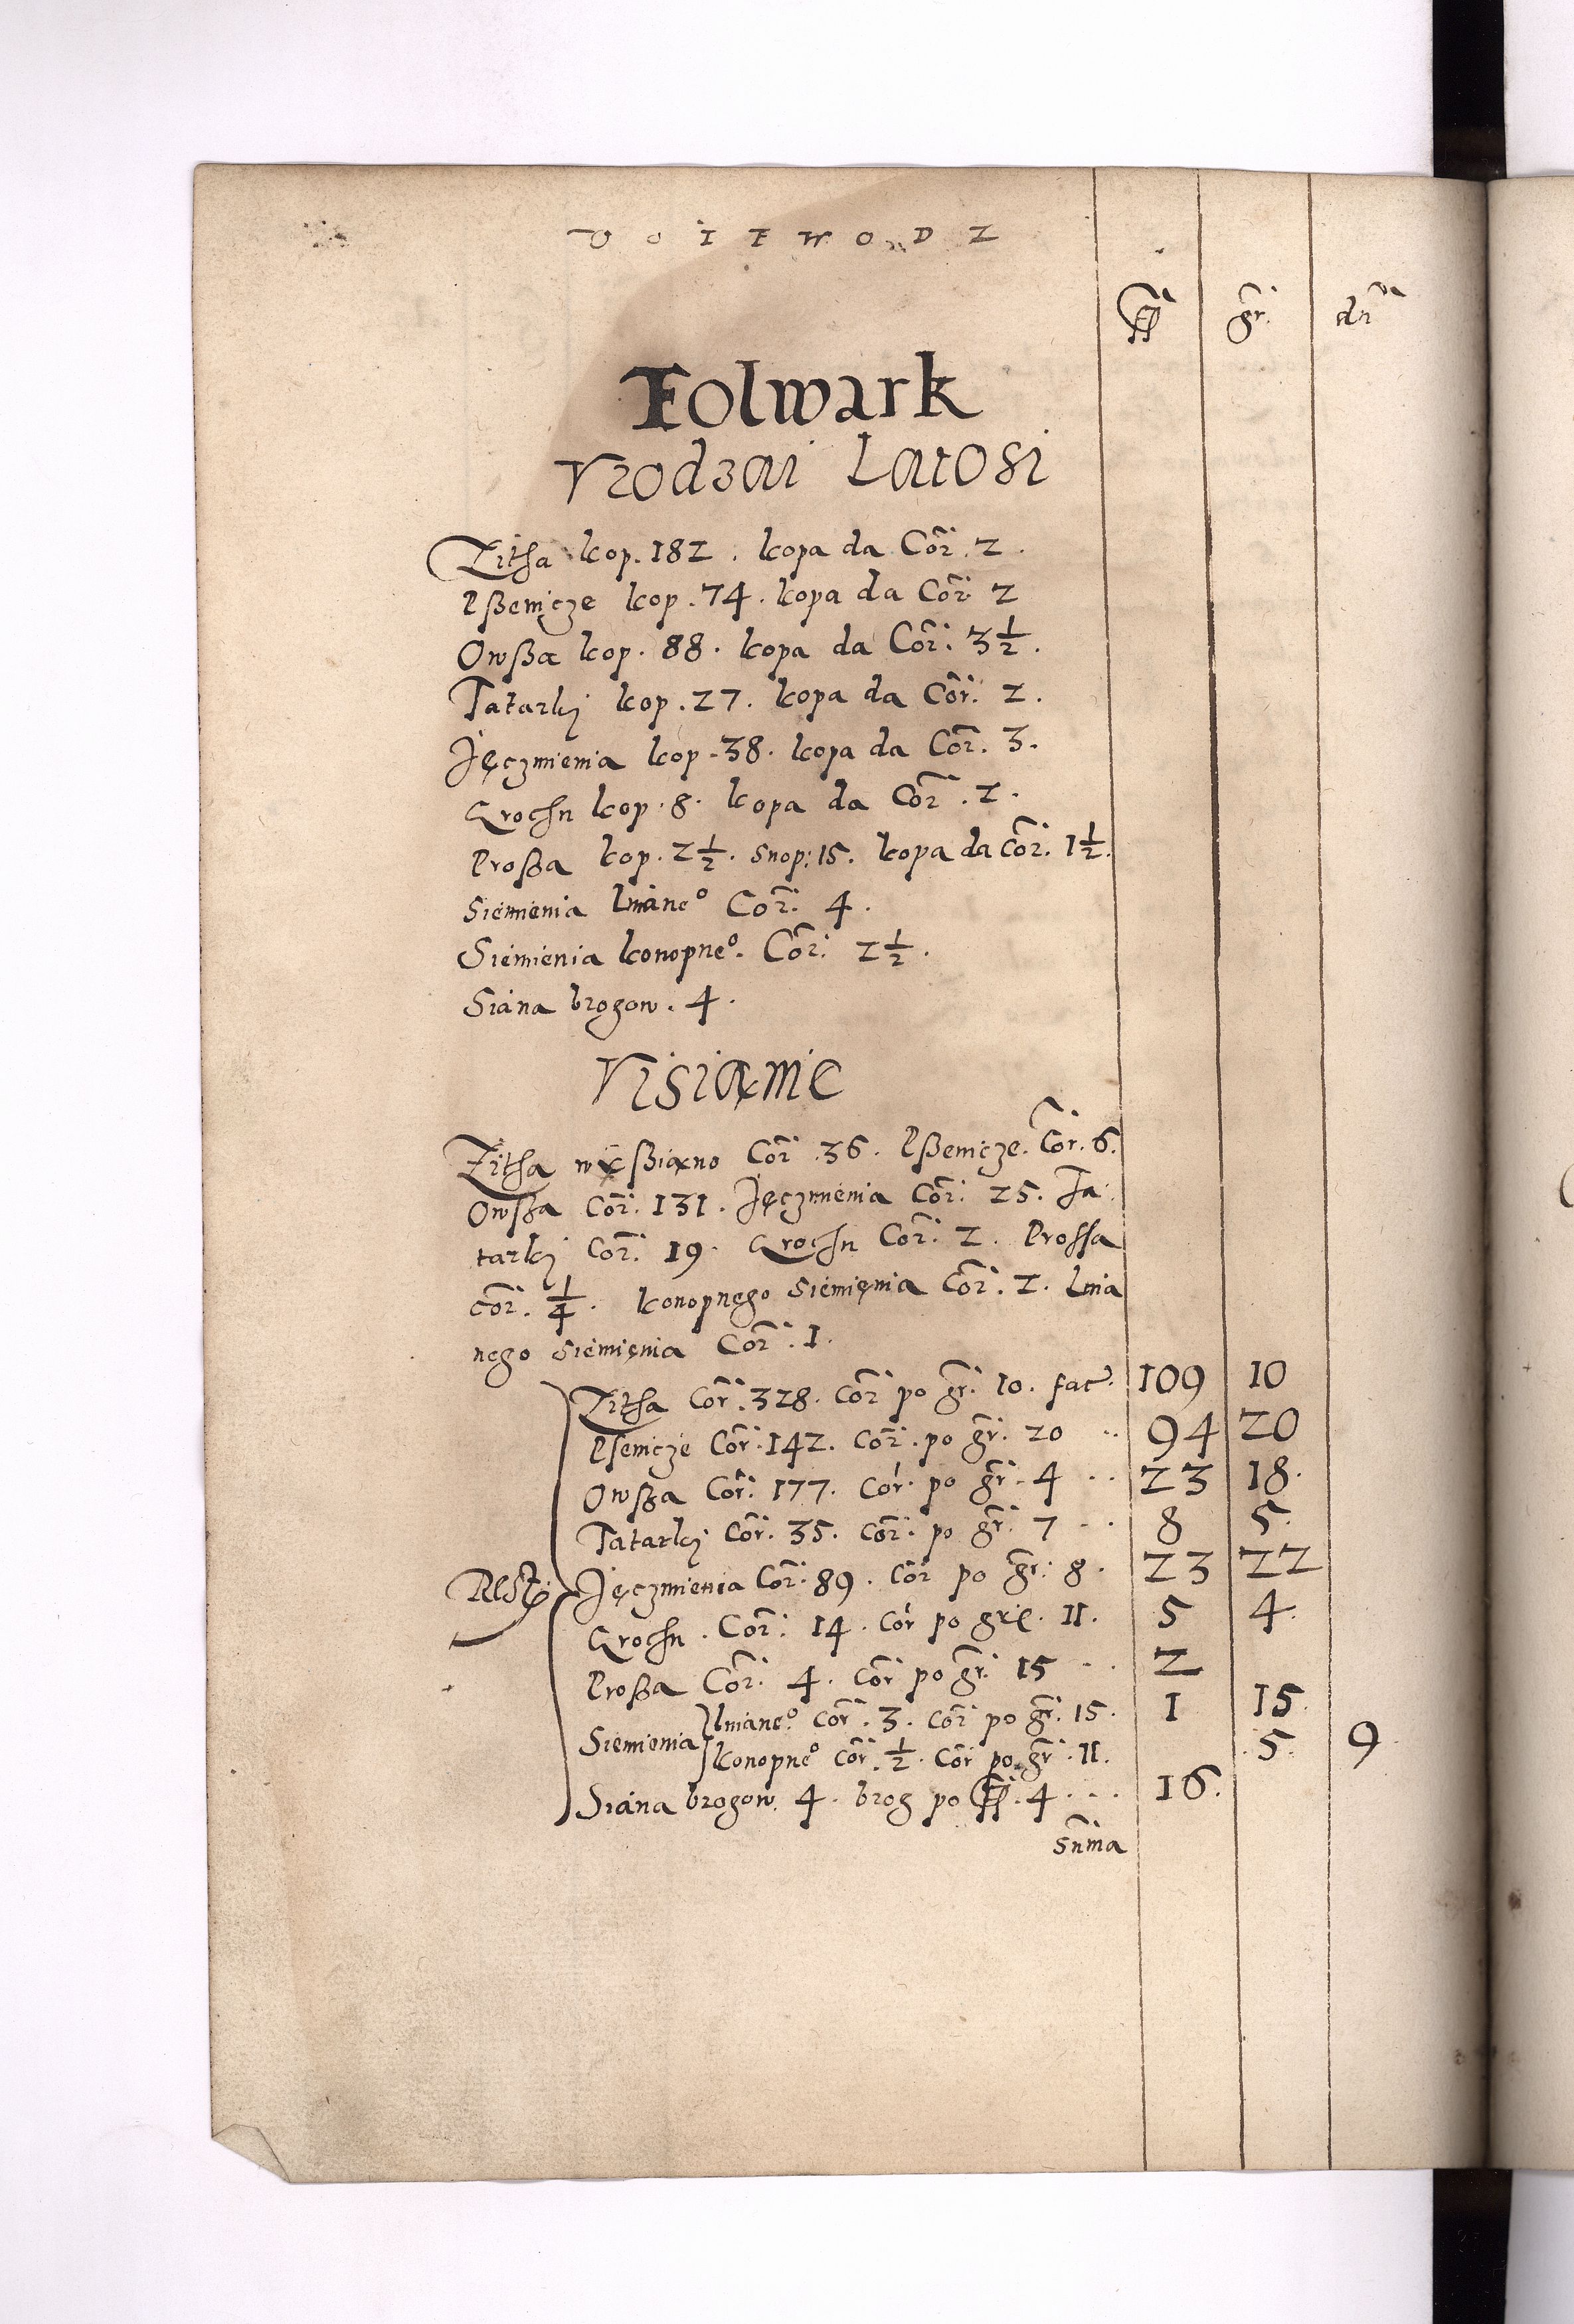 V O I E W O D Z
ff gr. dn
Folwark
Vrodzai Latosi
Zitha kop. 182. kopa da Cor. 2.
Pßenicze kop. 74. kopa da Cor 2
Owßa kop. 88. kopa da Cor. 3 1/2.
Tatarkj kop. 27. kopa da Cor. 2.
Jęczmienia kop. 38. kopa da Cor. 3.
Grochu kop. 8. kopa da Cor. 2.
Proßa kop. 2 1/2. snop: 15. kopa da Cor. 1 1/2.
Siemienia lniane° Cor. 4.
Siemienia konopne°. Cor. 2 1/2.
Siana brogow. 4.
Visianie
Zitha wyßiano Cor. 36. Pßenicze. Cor. 6.
Owßa Cor. 131. Jęczmienia Cor. 25. Ta
tarkj Cor. 19. Grochu Cor. 2. Prossa
cor. 1/4. konopnego siemięnia Cor. 2. lnia
nego siemięnia Cor. 1.
Zitha Cor. 328. Cor po gr. 10. fac. 109 10
Psenicze Cor. 142. Cor. po gr. 20 .. 94 20
Owßa Cor. 177. Cor. po gr. 4 .. 23 18.
Tatarkj Cor. 35. Cor. po gr. 7 .. 8 5.
Rest. Jęczmienia Cor. 89. Cor po gr. 8. 23 22
Grochu. Cor. 14. Cor po gr. 11. 5 4.
Proßa Cor. 4. Cor po gr. 15 .. 2
Siemienia lniane° Cor. 3. Cor po gr. 15. 1 15
konopne° Cor. 1/2. Cor po gr. 11. 5. 9.
Siana brogow. 4. brog po ff. 4 .... 16.
sūma